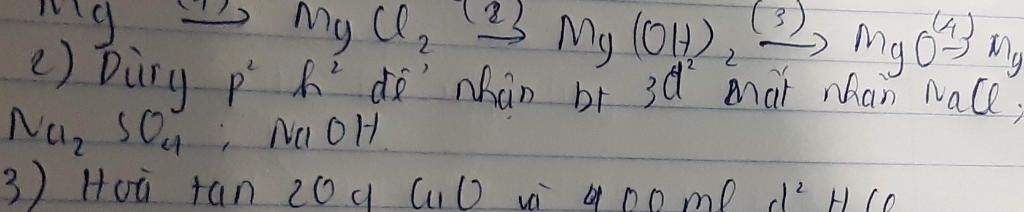 Mg (1)→ MgCl₂ (2)→ Mg(OH)₂ (3)→ MgO (4)→ Mg
2) Dùng p² h² để nhận bt 3d² mất nhãn NaCl;
Na₂SO₄; NaOH.
3) Hoà tan 20g CuO và 400ml d² HCl